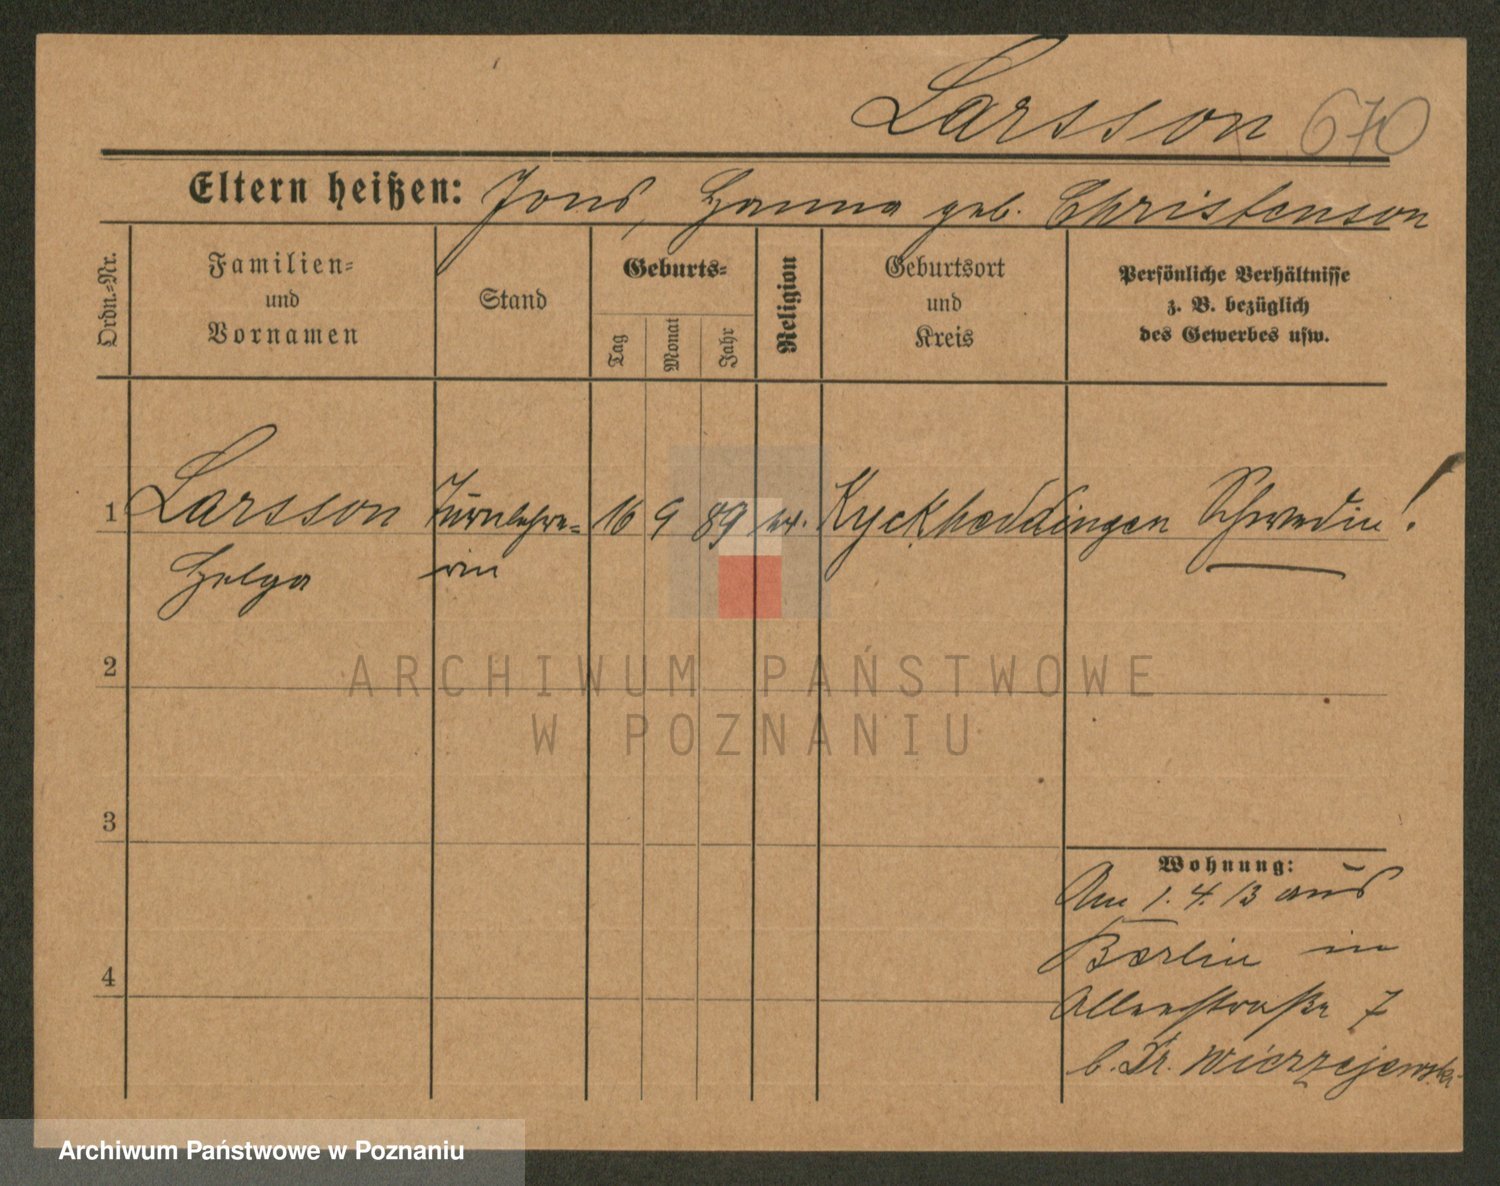 Larsson 670
Eltern heißen: Jons, Hanna geb. Christenson
Ordn.-Nr.
Familien-
und
Vornamen
Stand
Geburts-
Tag
Monat
Jahr
Religion
Geburtsort
und
Kreis
Persönliche Verhältnisse
z. B. bezüglich
des Gewerbes usw.
1 Larsson Turnlehre- 16 9 89 ev. Kyckheddingen Schweden!
Helga rin
2
ARCHIWUM PAŃSTWOWE
W POZNANIU
3
Wohnung:
Am 1. 4. 13 aus
Berlin in
4
Alleestraße 7
b. Dr. Wierzejewski
Archiwum Państwowe w Poznaniu